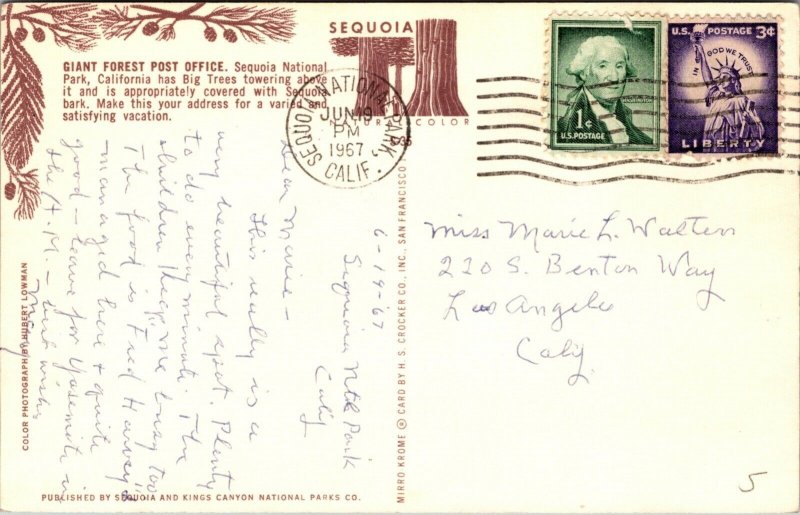 SEQUOIA
NATURAL COLOR
GIANT FOREST POST OFFICE. Sequoia National
Park, California has Big Trees towering above
it and is appropriately covered with Sequoia
bark. Make this your address for a varied and
satisfying vacation.
SEQUOIA NATIONAL PARK, CALIF.
JUN 19
PM
1967
1¢
WASHINGTON
U.S. POSTAGE
U.S. POSTAGE 3¢
IN GOD WE TRUST
LIBERTY
6-19-67
Sequoia Natl Park
Calif
Dear Marie—
This really is a
very beautiful spot. Plenty
to do every minute. The
children keep me busy too
The food is "Fred Harvey"
managed here & quite
good— leave for Yosemite in
the A.M.— Best wishes
Miss Marie L. Walters
220 S. Benton Way
Los Angeles
Calif
5
COLOR PHOTOGRAPH BY HUBERT LOWMAN
MIRRO KROME ® CARD BY H. S. CROCKER CO., INC., SAN FRANCISCO
PUBLISHED BY SEQUOIA AND KINGS CANYON NATIONAL PARKS CO.